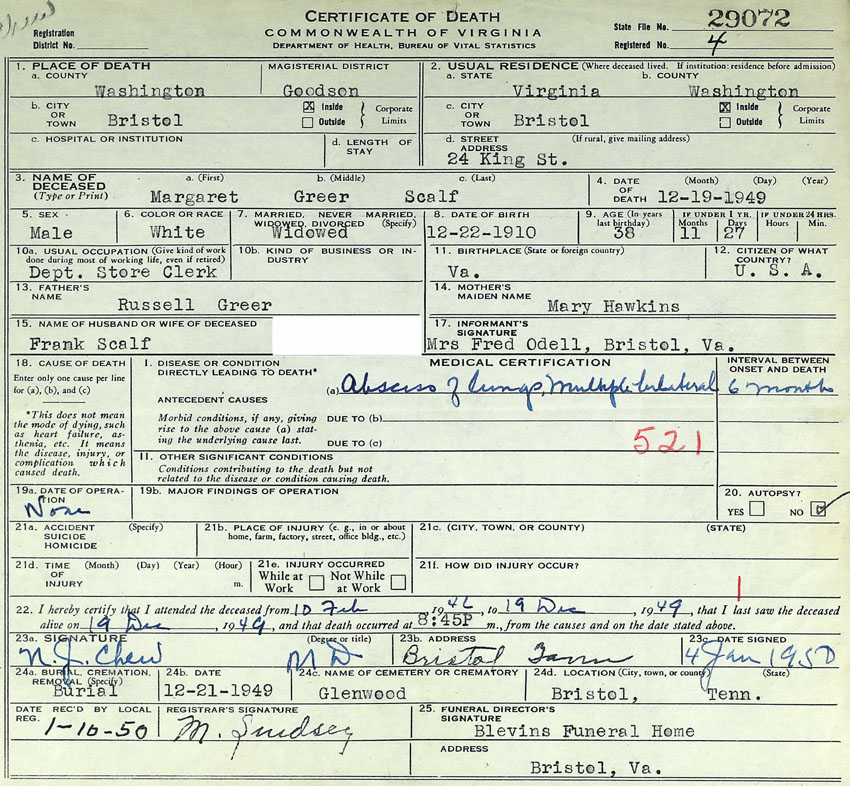 CERTIFICATE OF DEATH
COMMONWEALTH OF VIRGINIA
DEPARTMENT OF HEALTH, BUREAU OF VITAL STATISTICS
Registration
District No.
State File No. 29072
Registered No. 4
1. PLACE OF DEATH
a. COUNTY Washington
MAGISTERIAL DISTRICT Goodson
b. CITY OR TOWN Bristol
☒ Inside ☐ Outside } Corporate Limits
c. HOSPITAL OR INSTITUTION
d. LENGTH OF STAY
2. USUAL RESIDENCE (Where deceased lived. If institution: residence before admission)
a. STATE Virginia
b. COUNTY Washington
c. CITY OR TOWN Bristol
☒ Inside ☐ Outside } Corporate Limits
d. STREET ADDRESS (If rural, give mailing address)
24 King St.
3. NAME OF DECEASED (Type or Print)
a. (First) b. (Middle) c. (Last)
Margaret Greer Scalf
4. DATE OF DEATH (Month) (Day) (Year)
12-19-1949
5. SEX Male
6. COLOR OR RACE White
7. MARRIED, NEVER MARRIED, WIDOWED, DIVORCED (Specify)
Widowed
8. DATE OF BIRTH
12-22-1910
9. AGE (In years last birthday) 38
IF UNDER 1 YR. Months 11 Days 27
IF UNDER 24 HRS. Hours Min.
10a. USUAL OCCUPATION (Give kind of work done during most of working life, even if retired)
Dept. Store Clerk
10b. KIND OF BUSINESS OR INDUSTRY
11. BIRTHPLACE (State or foreign country)
Va.
12. CITIZEN OF WHAT COUNTRY?
U. S. A.
13. FATHER'S NAME
Russell Greer
14. MOTHER'S MAIDEN NAME
Mary Hawkins
15. NAME OF HUSBAND OR WIFE OF DECEASED
Frank Scalf
17. INFORMANT'S SIGNATURE
Mrs Fred Odell, Bristol, Va.
18. CAUSE OF DEATH
Enter only one cause per line for (a), (b), and (c)
*This does not mean the mode of dying, such as heart failure, asthenia, etc. It means the disease, injury, or complication which caused death.
MEDICAL CERTIFICATION
I. DISEASE OR CONDITION DIRECTLY LEADING TO DEATH*
(a) Abscess of lungs, Multiple bilateral
INTERVAL BETWEEN ONSET AND DEATH
6 months
ANTECEDENT CAUSES
Morbid conditions, if any, giving rise to the above cause (a) stating the underlying cause last.
DUE TO (b)
DUE TO (c)
521
II. OTHER SIGNIFICANT CONDITIONS
Conditions contributing to the death but not related to the disease or condition causing death.
19a. DATE OF OPERATION
None
19b. MAJOR FINDINGS OF OPERATION
20. AUTOPSY?
YES ☐ NO ☑
21a. ACCIDENT SUICIDE HOMICIDE (Specify)
21b. PLACE OF INJURY (e. g., in or about home, farm, factory, street, office bldg., etc.)
21c. (CITY, TOWN, OR COUNTY) (STATE)
21d. TIME OF INJURY (Month) (Day) (Year) (Hour) m.
21e. INJURY OCCURRED
While at Work ☐ Not While at Work ☐
21f. HOW DID INJURY OCCUR?
1
22. I hereby certify that I attended the deceased from 10 Feb, 1946, to 19 Dec, 1949, that I last saw the deceased
alive on 19 Dec, 1949, and that death occurred at 8:45P m., from the causes and on the date stated above.
23a. SIGNATURE (Degree or title)
N. J. Chew M D
23b. ADDRESS
Bristol Tenn
23c. DATE SIGNED
4 Jan 1950
24a. BURIAL, CREMATION, REMOVAL (Specify)
Burial
24b. DATE
12-21-1949
24c. NAME OF CEMETERY OR CREMATORY
Glenwood
24d. LOCATION (City, town, or county) (State)
Bristol, Tenn.
DATE REC'D BY LOCAL REG.
1-10-50
REGISTRAR'S SIGNATURE
M. Lindsey
25. FUNERAL DIRECTOR'S SIGNATURE
Blevins Funeral Home
ADDRESS
Bristol, Va.